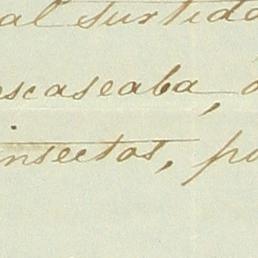 al surtido
escaseaba,
insectos, po